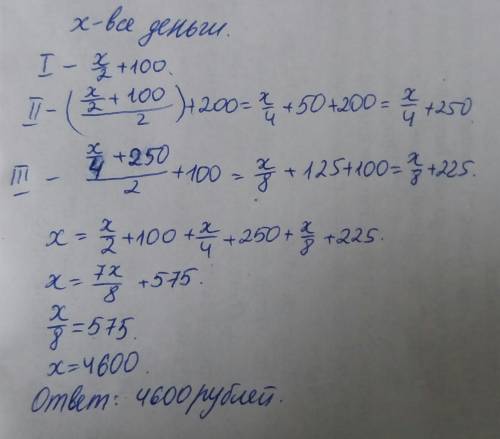 x - все деньги.
I - x/2 + 100.
II - ((x/2 + 100)/2) + 200 = x/4 + 50 + 200 = x/4 + 250
III - (x/4 + 250)/2 + 100 = x/8 + 125 + 100 = x/8 + 225.
x = x/2 + 100 + x/4 + 250 + x/8 + 225.
x = 7x/8 + 575.
x/8 = 575.
x = 4600.
Ответ: 4600 рублей.